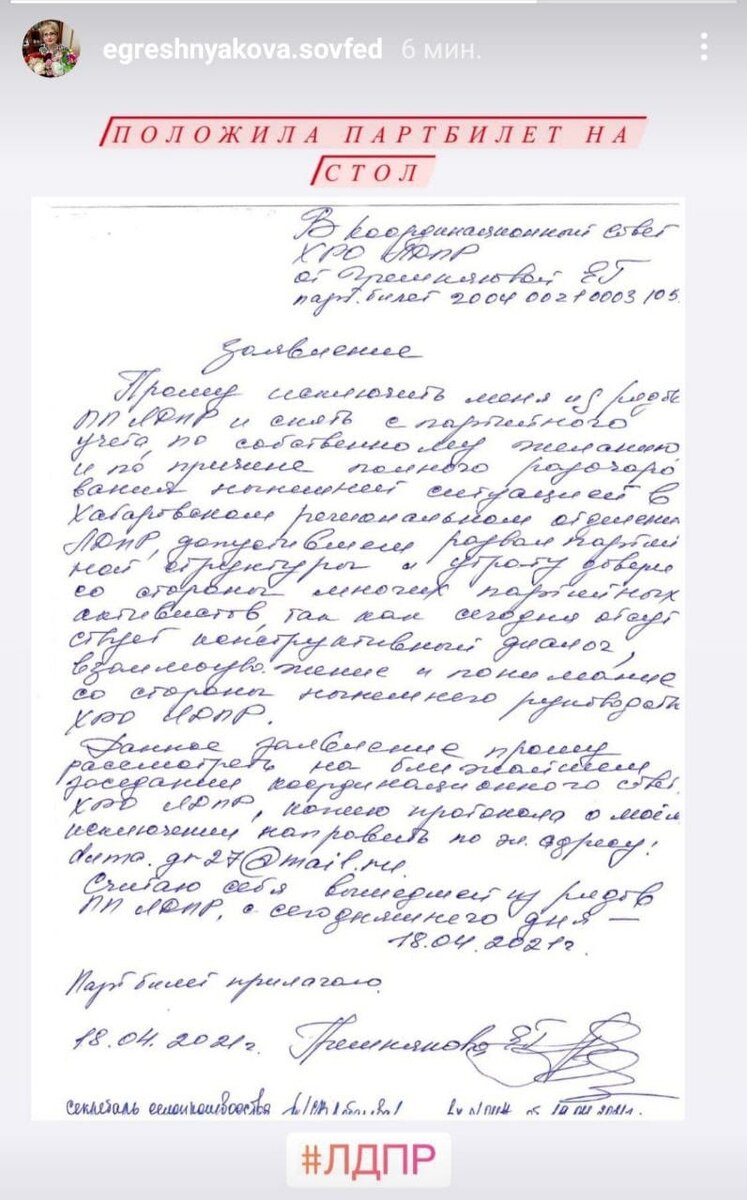 egreshnyakova.sovfed 6 мин.
ПОЛОЖИЛА ПАРТБИЛЕТ НА
СТОЛ
В координационный совет
ХРО ЛДПР
от Грешняковой ЕГ
парт. билет 2004 0021 0003 105
Заявление
Прошу исключить меня из рядов
ПП ЛДПР и снять с партийного
учета по собственному желанию
и по причине полного разочаро
вания нынешней ситуацией в
Хабаровском региональном отделени
ЛДПР, допустившем развал партий
ной структуры и утрату довери
со стороны многих партийных
активистов, так как сегодня отсут
ствует конструктивный диалог,
взаимоуважение и понимание
со стороны нынешнего руководств
ХРО ЛДПР.
Данное заявление прошу
рассмотреть на ближайшем
заседании координационного совет
ХРО ЛДПР, копию протокола о моем
исключении направить по эл. адресу:
duma.gr27@mail.ru.
Считаю себя вышедшей из рядов
ПП ЛДПР, с сегодняшнего дня —
18.04.2021г.
Партбилет прилагаю.
18.04.2021г. Грешнякова ЕГ
#ЛДПР